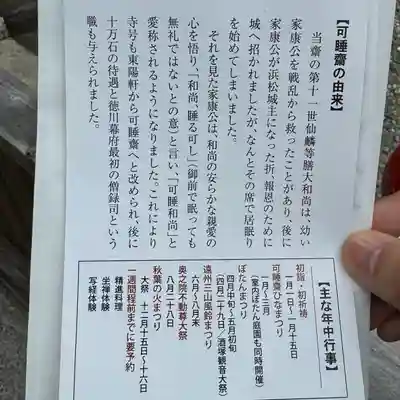 【可睡齋の由来】
当齋の第十一世仙麟等膳大和尚は、幼い
家康公を戦乱から救ったことがあり、後に
家康公が浜松城主になった折、報恩のために
城へ招かれましたが、なんとその席で居眠り
を始めてしまいました。
それを見た家康公は、和尚の安らかな親愛の
心を悟り、「和尚、睡る可し」(御前で眠っても
無礼ではないとの意)と言い、「可睡和尚」と
愛称されるようになりました。これにより
寺号も東陽軒から可睡齋へと改められ、後に
十万石の待遇と徳川幕府最初の僧録司という
職も与えられました。
【主な年中行事】
初詣・初祈祷
一月一日~一月十五日
可睡齋ひなまつり
一月~三月
(室内ぼたん庭園も同時開催)
ぼたんまつり
四月中旬~五月初旬
(四月二十九日/酒塚観音大祭)
遠州三山風鈴まつり
六月~八月末
奥之院不動尊大祭
八月二十八日
秋葉の火まつり
大祭 十二月十五日~十六日
一週間程前までに要予約
精進料理
坐禅体験
写経体験